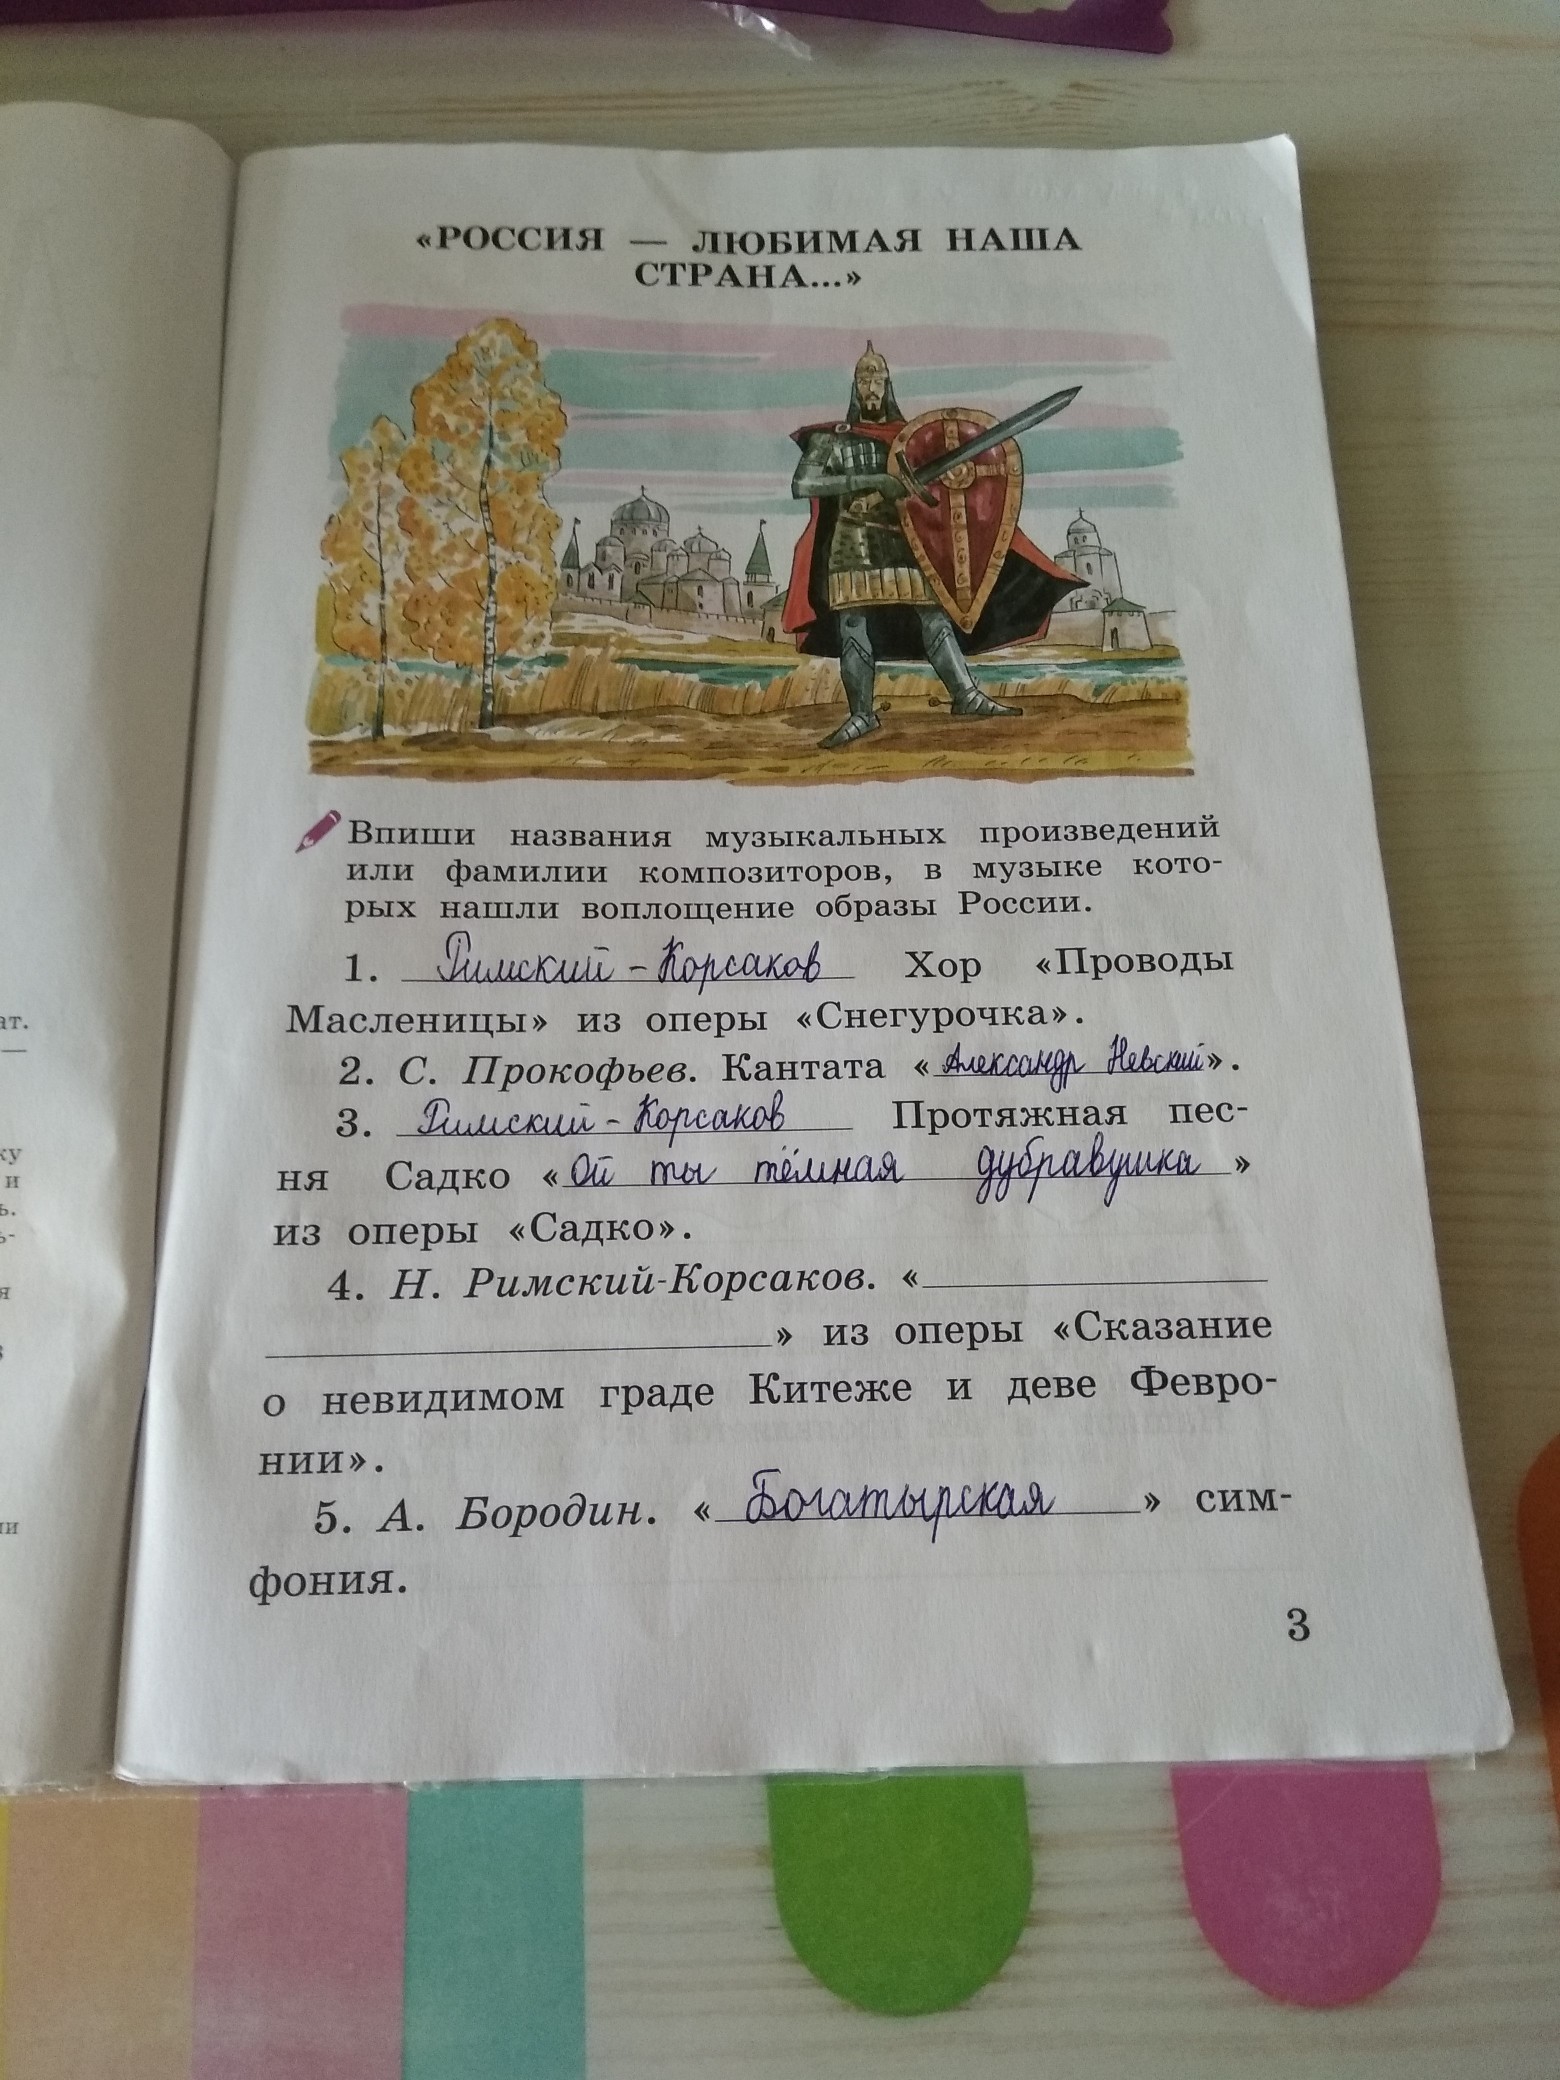 «РОССИЯ — ЛЮБИМАЯ НАША
СТРАНА...»
Впиши названия музыкальных произведений
или фамилии композиторов, в музыке кото-
рых нашли воплощение образы России.
1. Римский-Корсаков Хор «Проводы
Масленицы» из оперы «Снегурочка».
2. С. Прокофьев. Кантата «Александр Невский».
3. Римский-Корсаков Протяжная пес-
ня Садко «Ой ты тёмная дубравушка»
из оперы «Садко».
4. Н. Римский-Корсаков. «
» из оперы «Сказание
о невидимом граде Китеже и деве Февро-
нии».
5. А. Бородин. «Богатырская» сим-
фония.
3